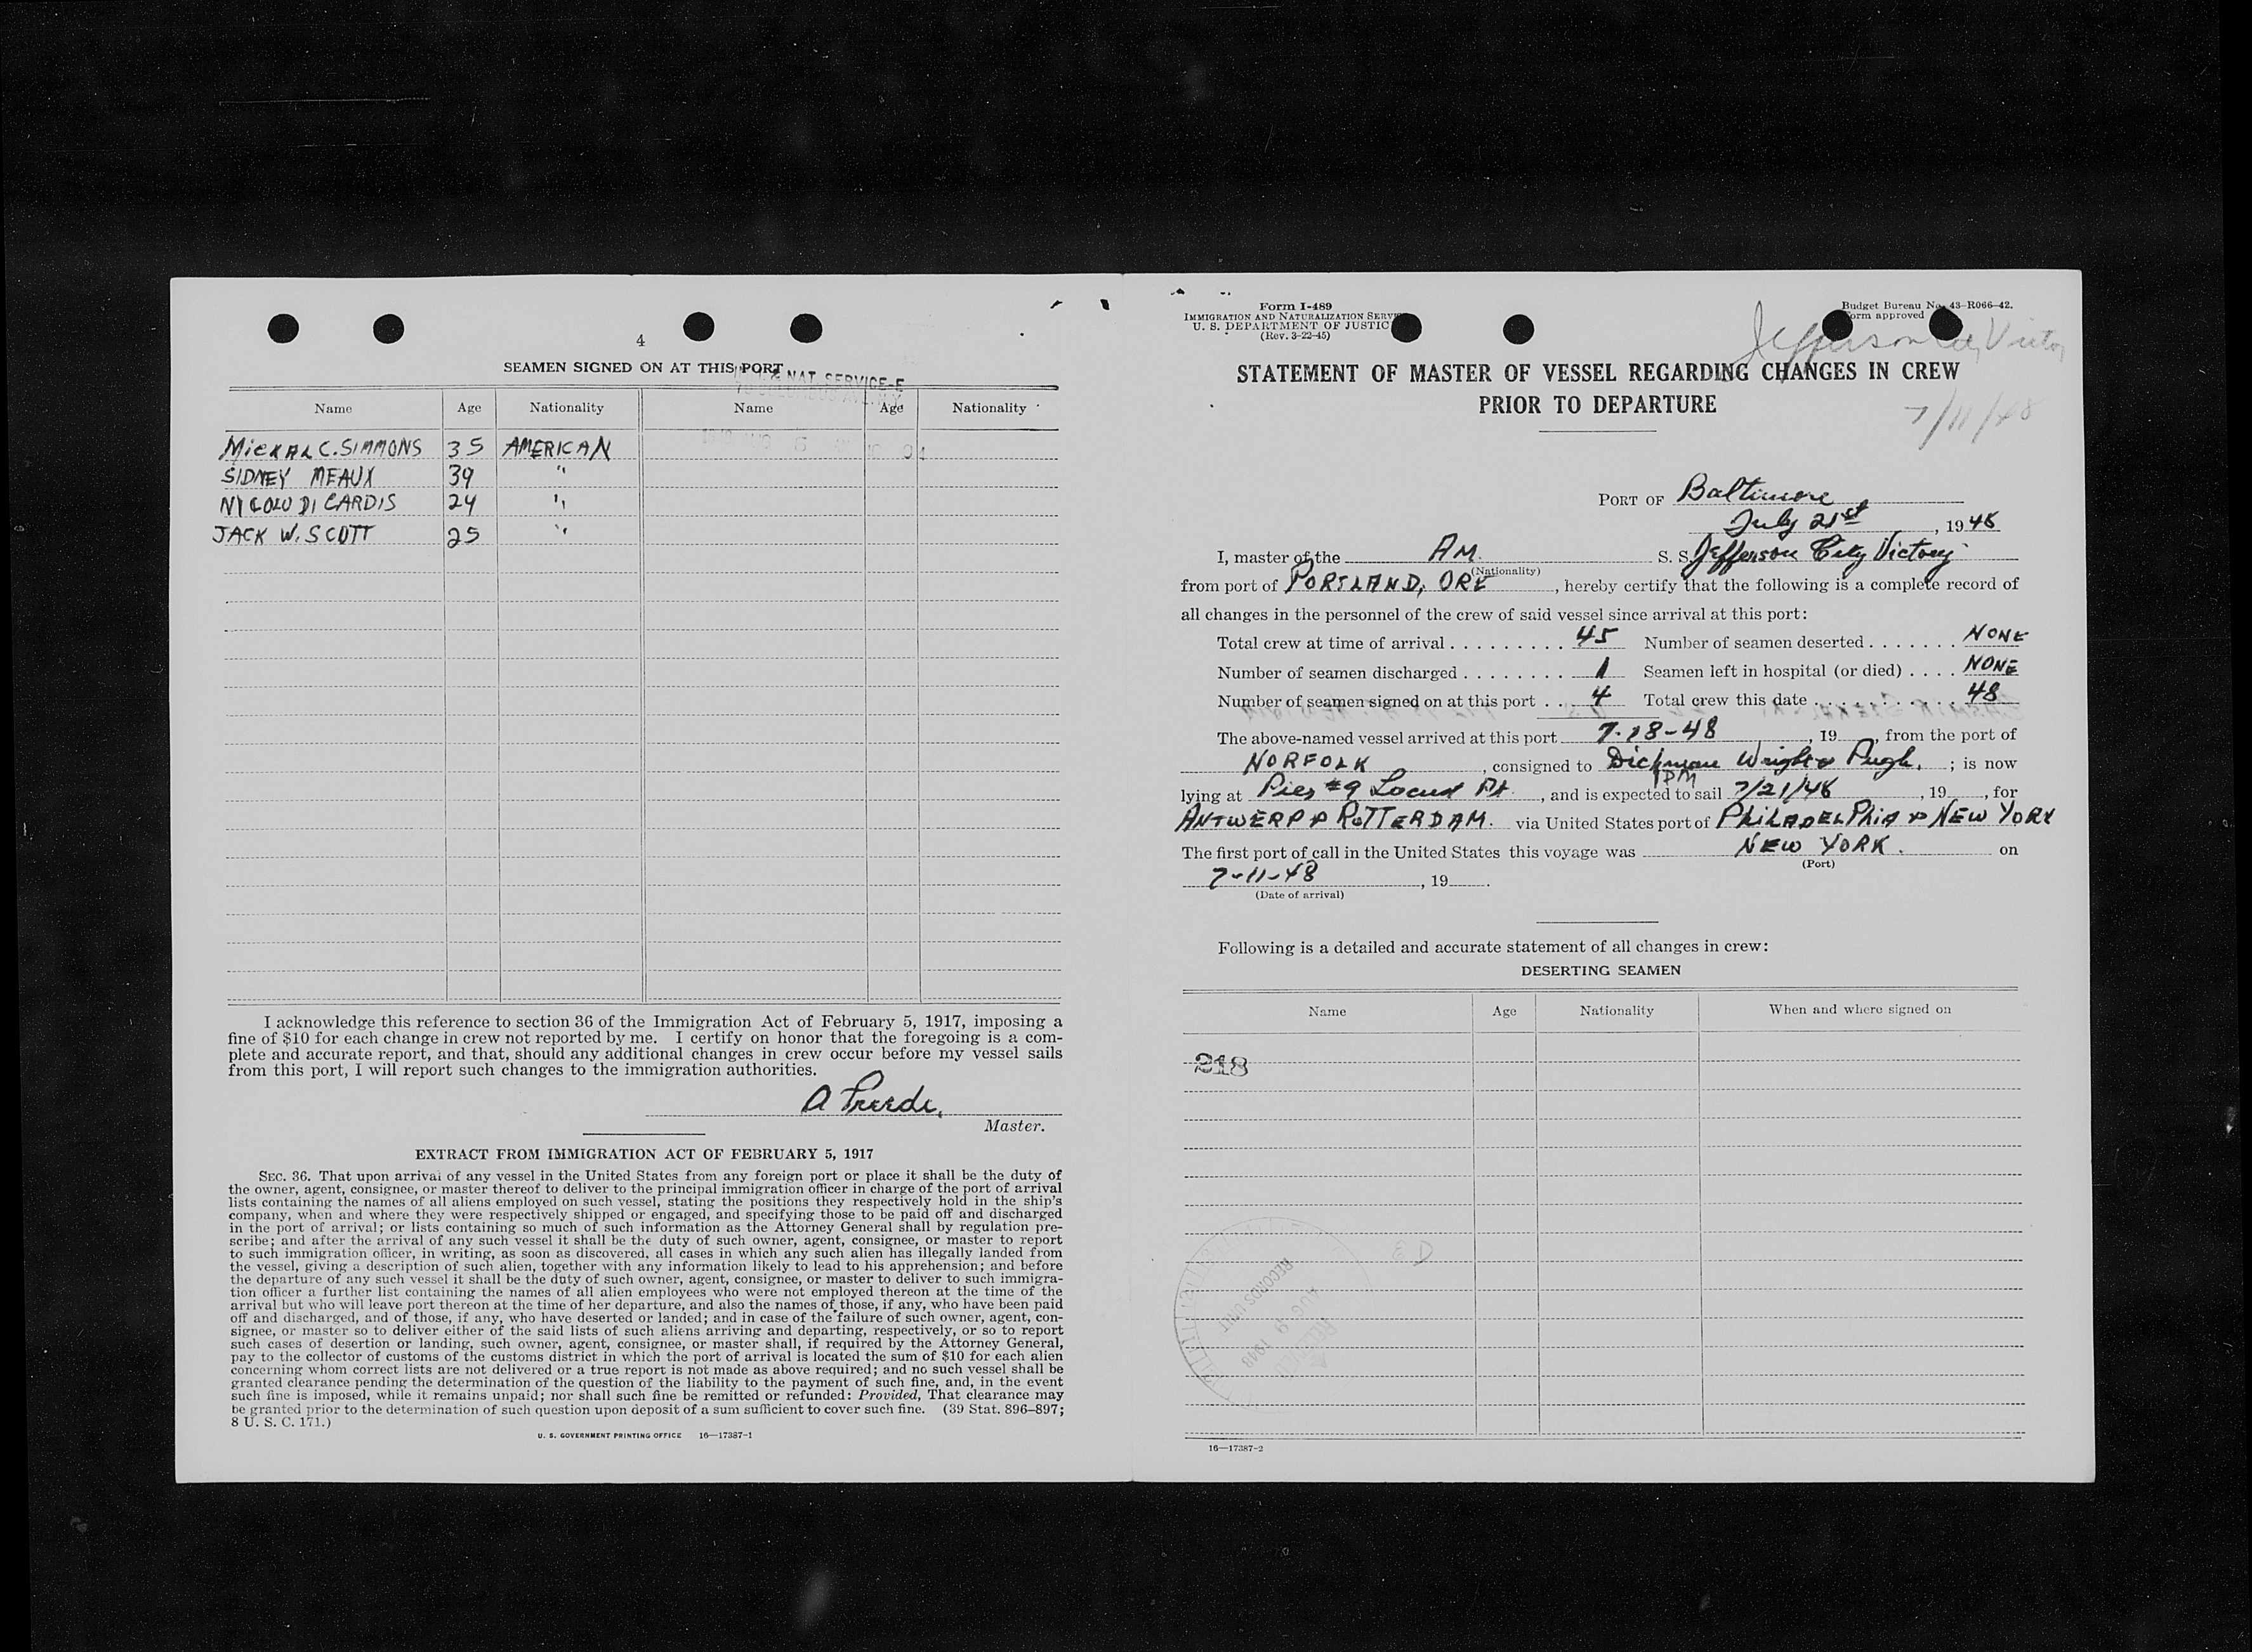 4
SEAMEN SIGNED ON AT THIS PORT
NAT. SERVICE-E
Name Age Nationality Name Age Nationality
MICKAL C. SIMMONS 35 AMERICAN
SIDNEY MEAUX 39 "
NICOLO DI CARDIS 24 "
JACK W. SCOTT 25 "
I acknowledge this reference to section 36 of the Immigration Act of February 5, 1917, imposing a
fine of $10 for each change in crew not reported by me. I certify on honor that the foregoing is a com-
plete and accurate report, and that, should any additional changes in crew occur before my vessel sails
from this port, I will report such changes to the immigration authorities.
A
Master.
EXTRACT FROM IMMIGRATION ACT OF FEBRUARY 5, 1917
SEC. 36. That upon arrival of any vessel in the United States from any foreign port or place it shall be the duty of
the owner, agent, consignee, or master thereof to deliver to the principal immigration officer in charge of the port of arrival
lists containing the names of all aliens employed on such vessel, stating the positions they respectively hold in the ship's
company, when and where they were respectively shipped or engaged, and specifying those to be paid off and discharged
in the port of arrival; or lists containing so much of such information as the Attorney General shall by regulation pre-
scribe; and after the arrival of any such vessel it shall be the duty of such owner, agent, consignee, or master to report
to such immigration officer, in writing, as soon as discovered, all cases in which any such alien has illegally landed from
the vessel, giving a description of such alien, together with any information likely to lead to his apprehension; and before
the departure of any such vessel it shall be the duty of such owner, agent, consignee, or master to deliver to such immigra-
tion officer a further list containing the names of all alien employees who were not employed thereon at the time of the
arrival but who will leave port thereon at the time of her departure, and also the names of those, if any, who have been paid
off and discharged, and of those, if any, who have deserted or landed; and in case of the failure of such owner, agent, con-
signee, or master so to deliver either of the said lists of such aliens arriving and departing, respectively, or so to report
such cases of desertion or landing, such owner, agent, consignee, or master shall, if required by the Attorney General,
pay to the collector of customs of the customs district in which the port of arrival is located the sum of $10 for each alien
concerning whom correct lists are not delivered or a true report is not made as above required; and no such vessel shall be
granted clearance pending the determination of the question of the liability to the payment of such fine, and, in the event
such fine is imposed, while it remains unpaid; nor shall such fine be remitted or refunded: Provided, That clearance may
be granted prior to the determination of such question upon deposit of a sum sufficient to cover such fine. (39 Stat. 896–897;
8 U. S. C. 171.)
U. S. GOVERNMENT PRINTING OFFICE 16—17387-1
Form I-489
IMMIGRATION AND NATURALIZATION SERV
U. S. DEPARTMENT OF JUSTIC
(Rev. 3-22-45)
Budget Bureau No. 43-R066-42.
Form approved
Jefferson City Victory
7/11/48
STATEMENT OF MASTER OF VESSEL REGARDING CHANGES IN CREW
PRIOR TO DEPARTURE
PORT OF Baltimore
July 21st, 1948
I, master of the AM. S. S. Jefferson City Victory
(Nationality)
from port of PORTLAND, ORE, hereby certify that the following is a complete record of
all changes in the personnel of the crew of said vessel since arrival at this port:
Total crew at time of arrival . . . . . . . . . 45 Number of seamen deserted . . . . . . . NONE
Number of seamen discharged . . . . . . . . 1 Seamen left in hospital (or died) . . . . NONE
Number of seamen signed on at this port . . 4 Total crew this date . . . . . . . . . . . 48
The above-named vessel arrived at this port 7-18-48, 19, from the port of
NORFOLK, consigned to Dichman Wright & Pugh. ; is now
1PM
lying at Pier #9 Locust Pt., and is expected to sail 7/21/48, 19, for
ANTWERP & ROTTERDAM. via United States port of PHILADELPHIA & NEW YORK
The first port of call in the United States this voyage was NEW YORK. on
(Port)
7-11-48, 19.
(Date of arrival)
Following is a detailed and accurate statement of all changes in crew:
DESERTING SEAMEN
Name Age Nationality When and where signed on
218
RECORDS UNIT
AUG 9 1948
RECEIVED
16—17387-2